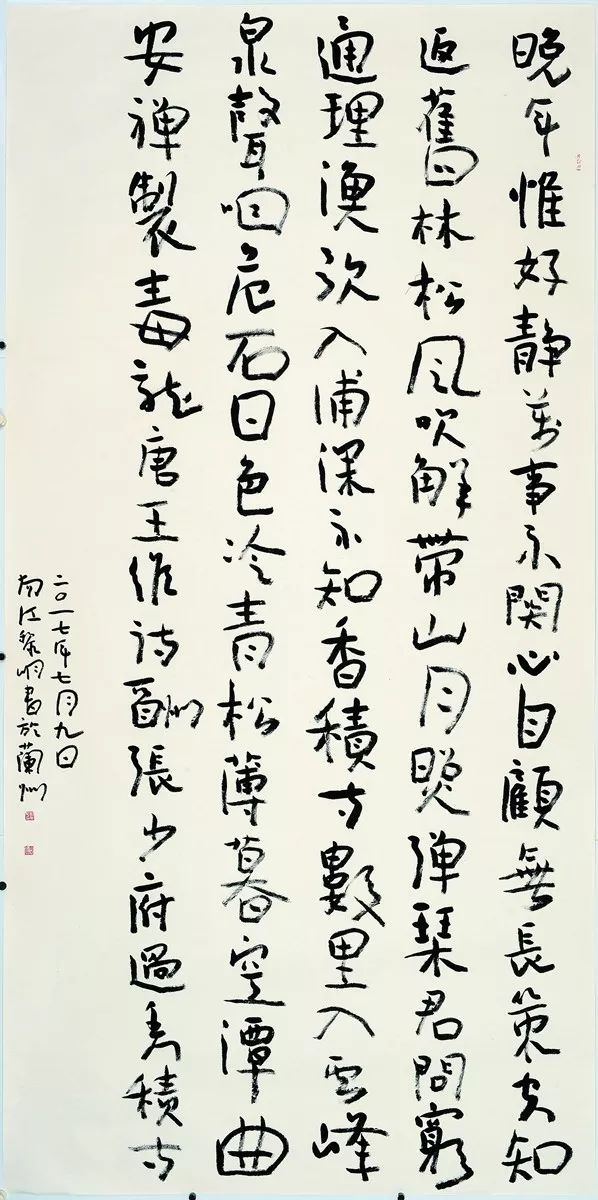 晚年惟好静萬事不關心自顧無長策空知
返舊林松風吹解帶山月照彈琹君問窮
通理漁歌入浦深不知香積寺數里入雲峰
泉聲咽危石日色冷青松薄暮空潭曲
安禅製毒龍唐王維詩酬張少府過香積寺
二〇一七年七月九日
黎明書於蘭州